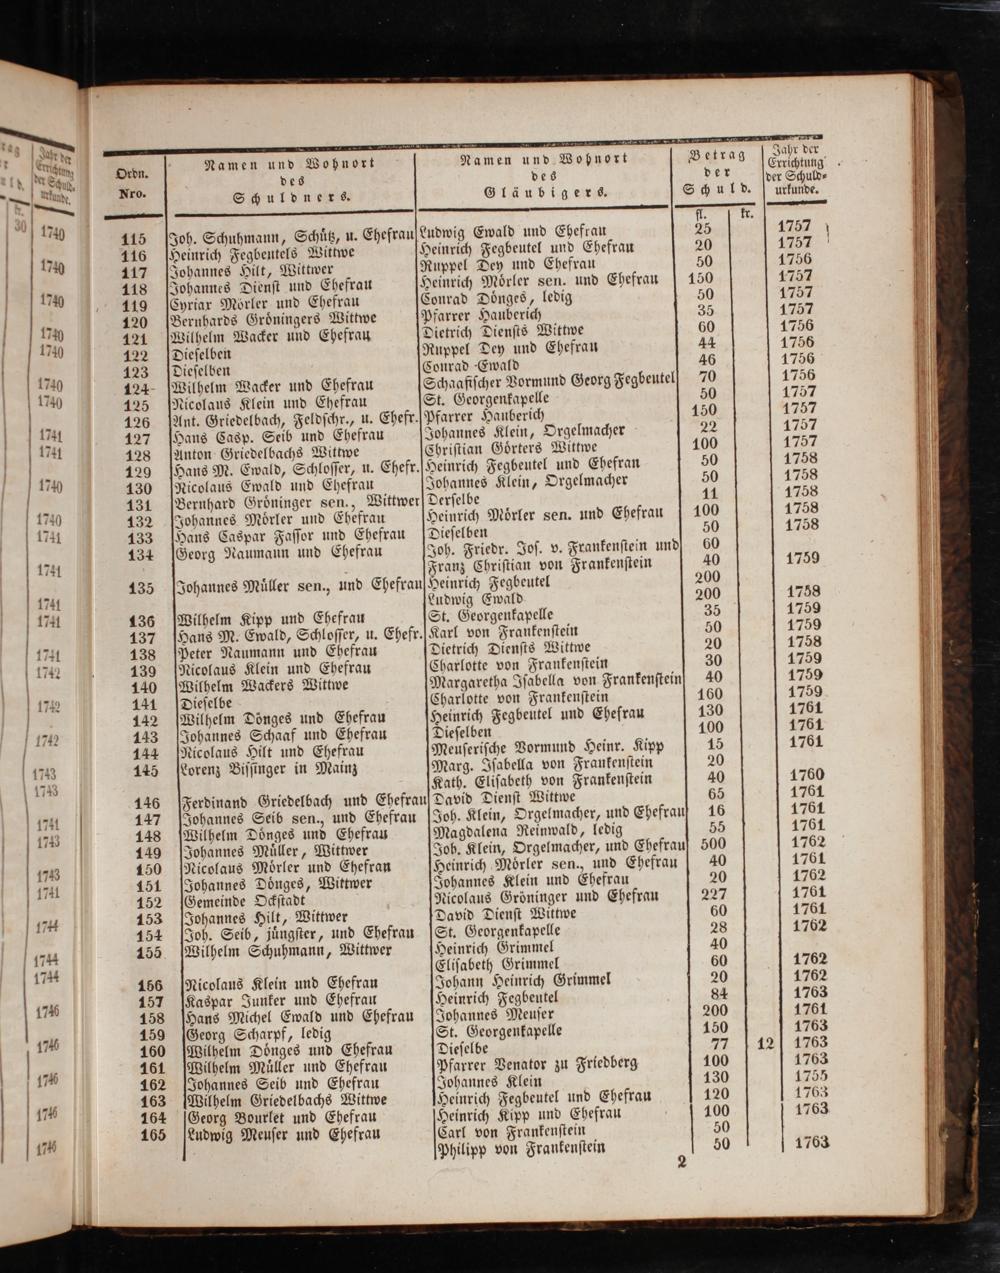 rag
Jahr der
Errichtung
der Schuld-
urkunde.
kr.
30 1740
1740
1740
1740
1740
1740
1740
1741
1741
1740
1740
1741
1741
1741
1741
1741
1742
1742
1742
1743
1743
1741
1743
1743
1741
1744
1744
1744
1746
1746
1746
1746
1746
Ordn. Nro. | Namen und Wohnort des Schuldners. | Namen und Wohnort des Gläubigers. | Betrag der Schuld. | Jahr der Errichtung der Schuld-urkunde.
fl. kr.
115 Joh. Schuhmann, Schütz, u. Ehefrau Ludwig Ewald und Ehefrau 25 1757
116 Heinrich Fegbeutels Wittwe Heinrich Fegbeutel und Ehefrau 20 1757
117 Johannes Hilt, Wittwer Ruppel Dey und Ehefrau 50 1756
118 Johannes Dienst und Ehefrau Heinrich Mörler sen. und Ehefrau 150 1757
119 Cyriax Mörler und Ehefrau Conrad Dönges, ledig 50 1757
120 Bernhards Gröningers Wittwe Pfarrer Hauberich 35 1757
121 Wilhelm Wacker und Ehefrau Dietrich Diensts Wittwe 60 1756
122 Dieselben Ruppel Dey und Ehefrau 44 1756
123 Dieselben Conrad Ewald 46 1756
124 Wilhelm Wacker und Ehefrau Schaafischer Vormund Georg Fegbeutel 70 1756
125 Nicolaus Klein und Ehefrau St. Georgenkapelle 50 1757
126 Ant. Griedelbach, Feldschr., u. Ehefr. Pfarrer Hauberich 150 1757
127 Hans Casp. Seib und Ehefrau Johannes Klein, Orgelmacher 22 1757
128 Anton Griedelbachs Wittwe Christian Görters Wittwe 100 1757
129 Hans M. Ewald, Schlosser, u. Ehefr. Heinrich Fegbeutel und Ehefrau 50 1758
130 Nicolaus Ewald und Ehefrau Johannes Klein, Orgelmacher 50 1758
131 Bernhard Gröninger sen., Wittwer Derselbe 11 1758
132 Johannes Mörler und Ehefrau Heinrich Mörler sen. und Ehefrau 100 1758
133 Hans Caspar Fassor und Ehefrau Dieselben 50 1758
134 Georg Naumann und Ehefrau Joh. Friedr. Jos. v. Frankenstein und 60
Franz Christian von Frankenstein 40 1759
135 Johannes Müller sen., und Ehefrau Heinrich Fegbeutel 200
Ludwig Ewald 200 1758
136 Wilhelm Kipp und Ehefrau St. Georgenkapelle 35 1759
137 Hans M. Ewald, Schlosser, u. Ehefr. Karl von Frankenstein 50 1759
138 Peter Naumann und Ehefrau Dietrich Diensts Wittwe 20 1758
139 Nicolaus Klein und Ehefrau Charlotte von Frankenstein 30 1759
140 Wilhelm Wackers Wittwe Margaretha Isabella von Frankenstein 40 1759
141 Dieselbe Charlotte von Frankenstein 160 1759
142 Wilhelm Dönges und Ehefrau Heinrich Fegbeutel und Ehefrau 130 1761
143 Johannes Schaaf und Ehefrau Dieselben 100 1761
144 Nicolaus Hilt und Ehefrau Meuserische Vormund Heinr. Kipp 15 1761
145 Lorenz Bissinger in Mainz Marg. Isabella von Frankenstein 20
Kath. Elisabeth von Frankenstein 40 1760
146 Ferdinand Griedelbach und Ehefrau David Dienst Wittwe 65 1761
147 Johannes Seib sen., und Ehefrau Joh. Klein, Orgelmacher, und Ehefrau 16 1761
148 Wilhelm Dönges und Ehefrau Magdalena Reinwald, ledig 55 1761
149 Johannes Müller, Wittwer Joh. Klein, Orgelmacher, und Ehefrau 500 1762
150 Nicolaus Mörler und Ehefrau Heinrich Mörler sen., und Ehefrau 40 1761
151 Johannes Dönges, Wittwer Johannes Klein und Ehefrau 20 1762
152 Gemeinde Ockstadt Nicolaus Gröninger und Ehefrau 227 1761
153 Johannes Hilt, Wittwer David Dienst Wittwe 60 1761
154 Joh. Seib, jüngster, und Ehefrau St. Georgenkapelle 28 1762
155 Wilhelm Schuhmann, Wittwer Heinrich Grimmel 40
Elisabeth Grimmel 60 1762
156 Nicolaus Klein und Ehefrau Johann Heinrich Grimmel 20 1762
157 Kaspar Junker und Ehefrau Heinrich Fegbeutel 84 1763
158 Hans Michel Ewald und Ehefrau Johannes Meuser 200 1761
159 Georg Scharpf, ledig St. Georgenkapelle 150 1763
160 Wilhelm Dönges und Ehefrau Dieselbe 77 12 1763
161 Wilhelm Müller und Ehefrau Pfarrer Venator zu Friedberg 100 1763
162 Johannes Seib und Ehefrau Johannes Klein 130 1755
163 Wilhelm Griedelbachs Wittwe Heinrich Fegbeutel und Ehefrau 120 1763
164 Georg Bourlet und Ehefrau Heinrich Kipp und Ehefrau 100 1763
165 Ludwig Meuser und Ehefrau Carl von Frankenstein 50
Philipp von Frankenstein 50 1763
2